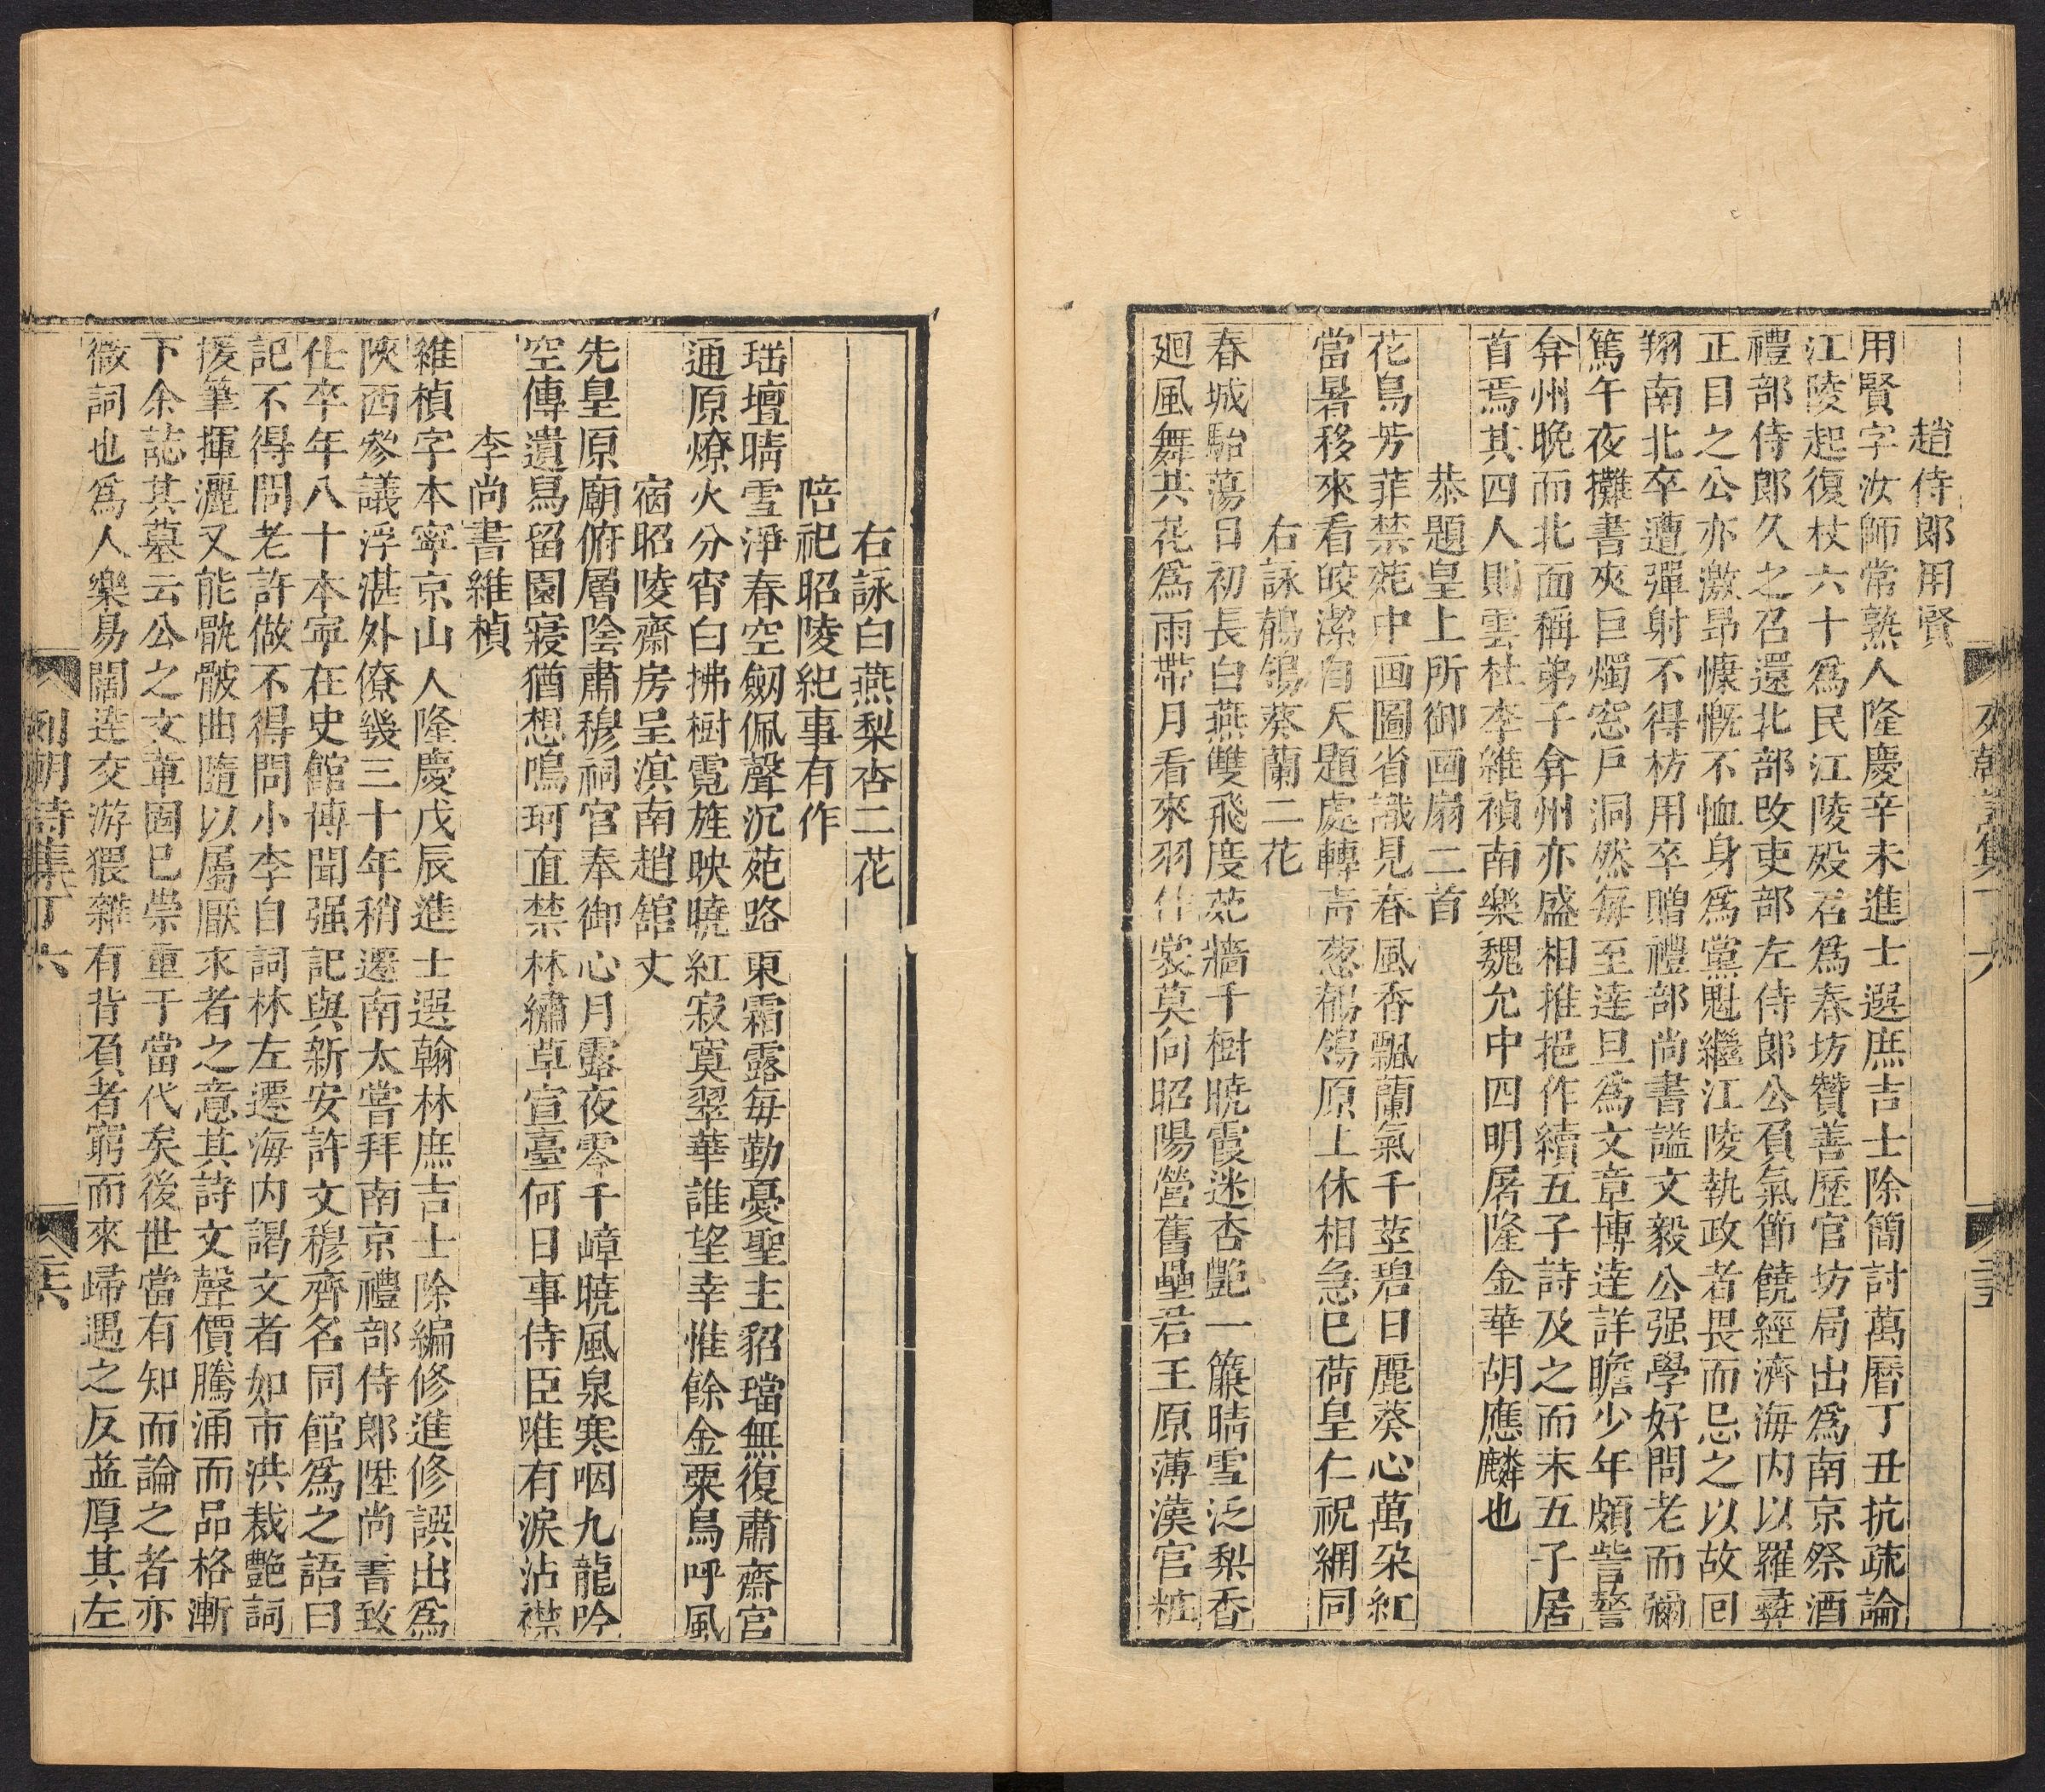 趙侍郎用賢
用賢字汝師常熟人隆慶辛未進士選庶吉士除簡討萬曆丁丑抗疏論
江陵起復杖六十爲民江陵歿召爲春坊贊善歷官坊局出爲南京祭酒
禮部侍郎久之召還北部改吏部左侍郎公負氣節饒經濟海内以羅彝
正目之公亦激昂慷慨不恤身爲黨魁繼江陵執政者畏而忌之以故回
翔南北卒遭彈射不得枋用卒贈禮部尚書謚文毅公强學好問老而彌
篤午夜攤書夾巨燭窓戶洞然每至達旦爲文章博達詳贍少年頗訾謷
弇州晚而北面稱弟子弇州亦盛相推挹作續五子詩及之而末五子居
首焉其四人則雲杜李維禎南樂魏允中四明屠隆金華胡應麟也
恭題皇上所御画扇二首
花鳥芳菲禁苑中画圖省識見春風香飄蘭氣千莖碧日麗葵心萬朶紅
當暑移來看皎潔自天題處轉靑葱鶺鴒原上休相急已荷皇仁祝網同
右詠鶺鴒葵蘭二花
春城駘蕩日初長白燕雙飛度苑墻千樹曉霞迷杏艶一簾晴雪泛梨香
廻風舞共花爲雨帶月看來羽作裳莫向昭陽營舊壘君王原薄漢宮粧
列朝詩集丁六
右詠白燕梨杏二花
陪祀昭陵紀事有作
瑤壇晴雪淨春空劒佩聲沉苑路東霜露每勤憂聖主貂璫無復肅齋宮
通原燎火分宵白拂樹霓旌映曉紅寂寞翠華誰望幸惟餘金粟鳥呼風
宿昭陵齋房呈滇南趙舘丈
先皇原廟俯層陰肅穆祠官奉御心月露夜零千嶂曉風泉寒咽九龍吟
空傳遺舄留園寢猶想鳴珂直禁林繡草宣臺何日事侍臣唯有淚沾襟
李尚書維楨
維楨字本寧京山人隆慶戊辰進士選翰林庶吉士除編修進修譔出爲
陝西參議浮湛外僚幾三十年稍遷南太常拜南京禮部侍郎陞尚書致
仕卒年八十本寧在史館博聞强記與新安許文穆齊名同館爲之語曰
記不得問老許做不得問小李自詞林左遷海内謁文者如市洪裁艶詞
援筆揮灑又能骫骳曲隨以屬厭求者之意其詩文聲價騰涌而品格漸
下余誌其墓云公之文章固已崇重于當代矣後世當有知而論之者亦
微詞也爲人樂易闊達交游猥雜有背負者窮而來歸遇之反益厚其左
列朝詩集丁六